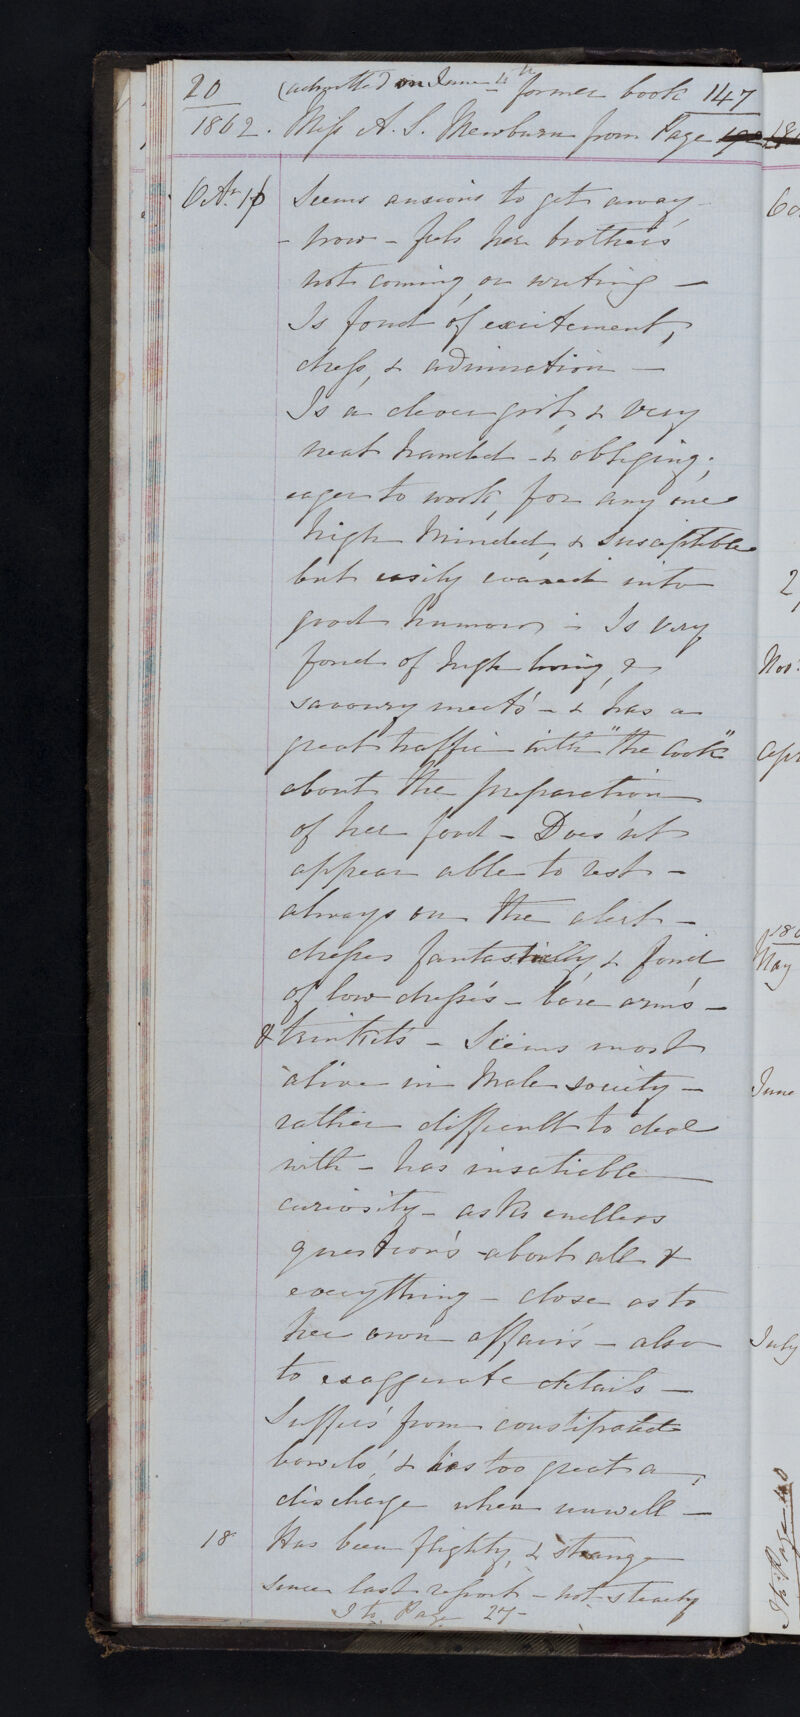 20 (admitted on June 4th former book 147
1862. Miss A. S. Newburn from Page
Octr. 16 Seems anxious to get away
- now - feels her brother's
not coming, or writing -
Is fond of excitement,
dress, & admiration -
Is a clever girl, & very
neat handed - & obliging;
eager to work, for any one
high minded, & susceptible
but easily coaxed into
good humour - Is very
fond of high living, &
savoury meats - & has a
great traffic with "the Cook"
about the preparation
of her food - Does'nt
appear able to rest -
always on the alert -
dresses fantastically, & fond
of low dresses - bare arms -
& trinkets - Seems most
alive in Male society -
rather difficult to deal
with - has insatiable
curiosity - asks endless
questions about all &
everything - close as to
her own affairs - also
to exaggerate details -
Suffers from constipated
bowels, & has too great a
discharge when unwell -
18 Has been flighty, & strange
since last report - not steady
To Page 27-
Nov:
Apr
May
June
July
To Page 40